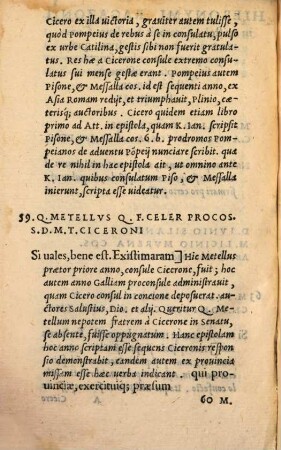 Cicero ex illa uictoria, grauiter autem tulisse,
quòd Pompeius de rebus à se in consulatu, pulso
ex urbe Catilina, gestis sibi non fuerit gratula-
tus. Res hæ a Cicerone consule extremo consu-
latus sui mense gestæ erant. Pompeius autem
Pisone, & Messalla cos. id est sequenti anno, ex
Asia Romam redijt, et triumphauit, Plinio, cæ-
terisq; auctoribus. Cicero quidem etiam libro
primo ad Att. in epistola, quam K. Ian. scripsit
Pisone, & Messalla cos. 6. b. prodromos Pom-
peianos de aduentu Põpeij nunciare scribit. qua
de re nihil in hac epistola ait, ut omnino ante
K. Ian. quibus consulatum Piso, & Messalla
inierunt, scripta esse uideatur.
59. Q. METELLVS Q. F. CELER PROCOS.
S. D. M. T. CICERONI
Si uales, bene est. Existimaram] Hic Metellus
prætor priore anno, consule Cicerone, fuit; hoc
autem anno Galliam proconsule administrauit,
quam Cicero consul in concione deposuerat. au-
ctores Salustius, Dio. et alij. Queritur Q. Me-
tellum nepotem fratrẽ à Cicerone in Senatu,
se absente, fuisse oppugnatum. Hanc epistolam
hoc anno scriptam esse sequens Ciceronis respon-
sio demonstrabit, eandem autem ex prouincia
missam esse hæc uerba indicant. qui pro-
uinciæ, exercituiq; præsum
Cicero A 60 M.